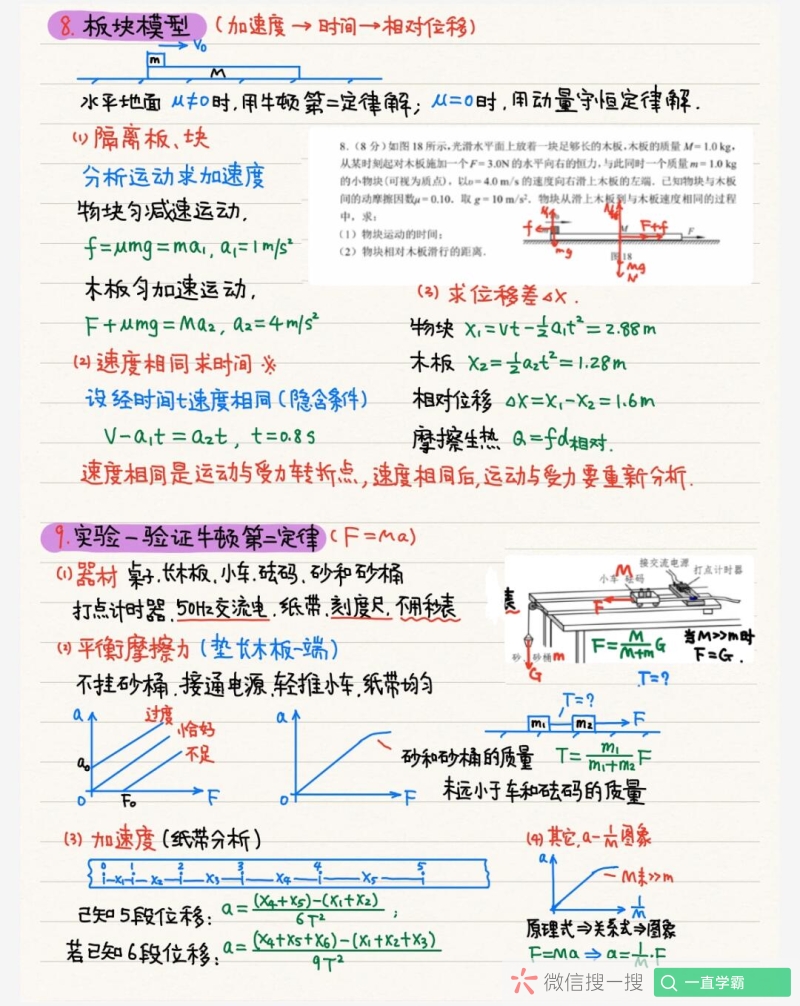 8. 板块模型 (加速度→时间→相对位移)
m V₀
M
水平地面 μ≠0时,用牛顿第二定律解; μ=0时,用动量守恒定律解.
(1) 隔离板、块
分析运动求加速度
物块匀减速运动,
f=μmg=ma₁, a₁=1m/s²
木板匀加速运动,
F+μmg=Ma₂, a₂=4m/s²
(2) 速度相同求时间 ※
设经时间t速度相同(隐含条件)
V-a₁t=a₂t, t=0.8s
8. (8分)如图18所示,光滑水平面上放着一块足够长的木板,木板的质量M=1.0 kg,
从某时刻起对木板施加一个F=3.0N的水平向右的恒力,与此同时一个质量m=1.0 kg
的小物块(可视为质点),以υ=4.0 m/s的速度向右滑上木板的左端.已知物块与木板
间的动摩擦因数μ=0.10.取g=10 m/s².物块从滑上木板到与木板速度相同的过程
中,求:
(1) 物块运动的时间;
(2) 物块相对木板滑行的距离.
f mg M F+f F
图18
Mg
N
(3) 求位移差△X.
物块 X₁=Vt-½a₁t²=2.88m
木板 X₂=½a₂t²=1.28m
相对位移 △X=X₁-X₂=1.6m
摩擦生热 Q=fd相对.
速度相同是运动与受力转折点,速度相同后,运动与受力要重新分析.
9. 实验-验证牛顿第二定律 (F=Ma)
(1) 器材 桌子.长木板.小车.砝码.砂和砂桶
打点计时器.50Hz交流电.纸带.刻度尺.不用秒表
表
接交流电源
打点计时器
M
小车 砝码
F
砂 砂桶 m
G
F=M/(M+m) G
当M>>m时
F=G.
(2) 平衡摩擦力 (垫长木板一端)
不挂砂桶.接通电源.轻推小车.纸带均匀
a 过度
恰好
不足
a₀
0 F₀ F
a
0 F
砂和砂桶的质量
未远小于车和砝码的质量
T=?
T=?
m₁ m₂ F
T=m₁/(m₁+m₂) F
(3) 加速度(纸带分析)
0 1 2 3 4 5
X₁ X₂ X₃ X₄ X₅
已知5段位移: a=((X₄+X₅)-(X₁+X₂))/6T² ;
若已知6段位移: a=((X₄+X₅+X₆)-(X₁+X₂+X₃))/9T²
(4) 其它, a-1/M图象
a
M未>>m
1/M
原理式⇒关系式⇒图象
F=Ma ⇒ a=1/M·F
微信搜一搜 一直学霸